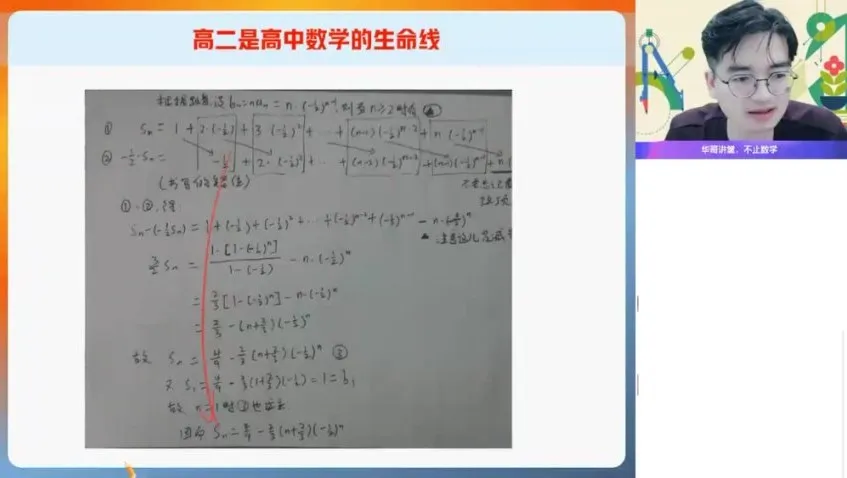 高二是高中数学的生命线
华哥讲堂,不止数学
根据题意,设 bₙ=naₙ = n·(-½)ⁿ⁻¹,则当 n≥2时有
① Sₙ = 1 + 2·(-½) + 3·(-½)² + … + (n-1)·(-½)ⁿ⁻² + n·(-½)ⁿ⁻¹
② -½·Sₙ = -½ + 2·(-½)² + … + (n-2)(-½)ⁿ⁻² + (n-1)(-½)ⁿ⁻¹ + n
①-②,得
Sₙ-(-½Sₙ) = 1+(-½)+(-½)²+…+(-½)ⁿ⁻²+(-½)ⁿ⁻¹ - n·(-½)ⁿ
Sₙ = 1·[1-(-½)ⁿ] / 1-(-½) - n·(-½)ⁿ
= ⅔[1-(-½)ⁿ] - n·(-½)ⁿ
= ⅔ - (n+⅔)(-½)ⁿ
故 Sₙ = 4/9 - ⅔(n+⅔)(-½)ⁿ ③
又 S₁ = 4/9 - ⅔(1+⅔)(-½) = 1 = b₁
故 n=1时③也成立
因而 Sₙ = 4/9 - ⅔(n+⅔)(-½)ⁿ